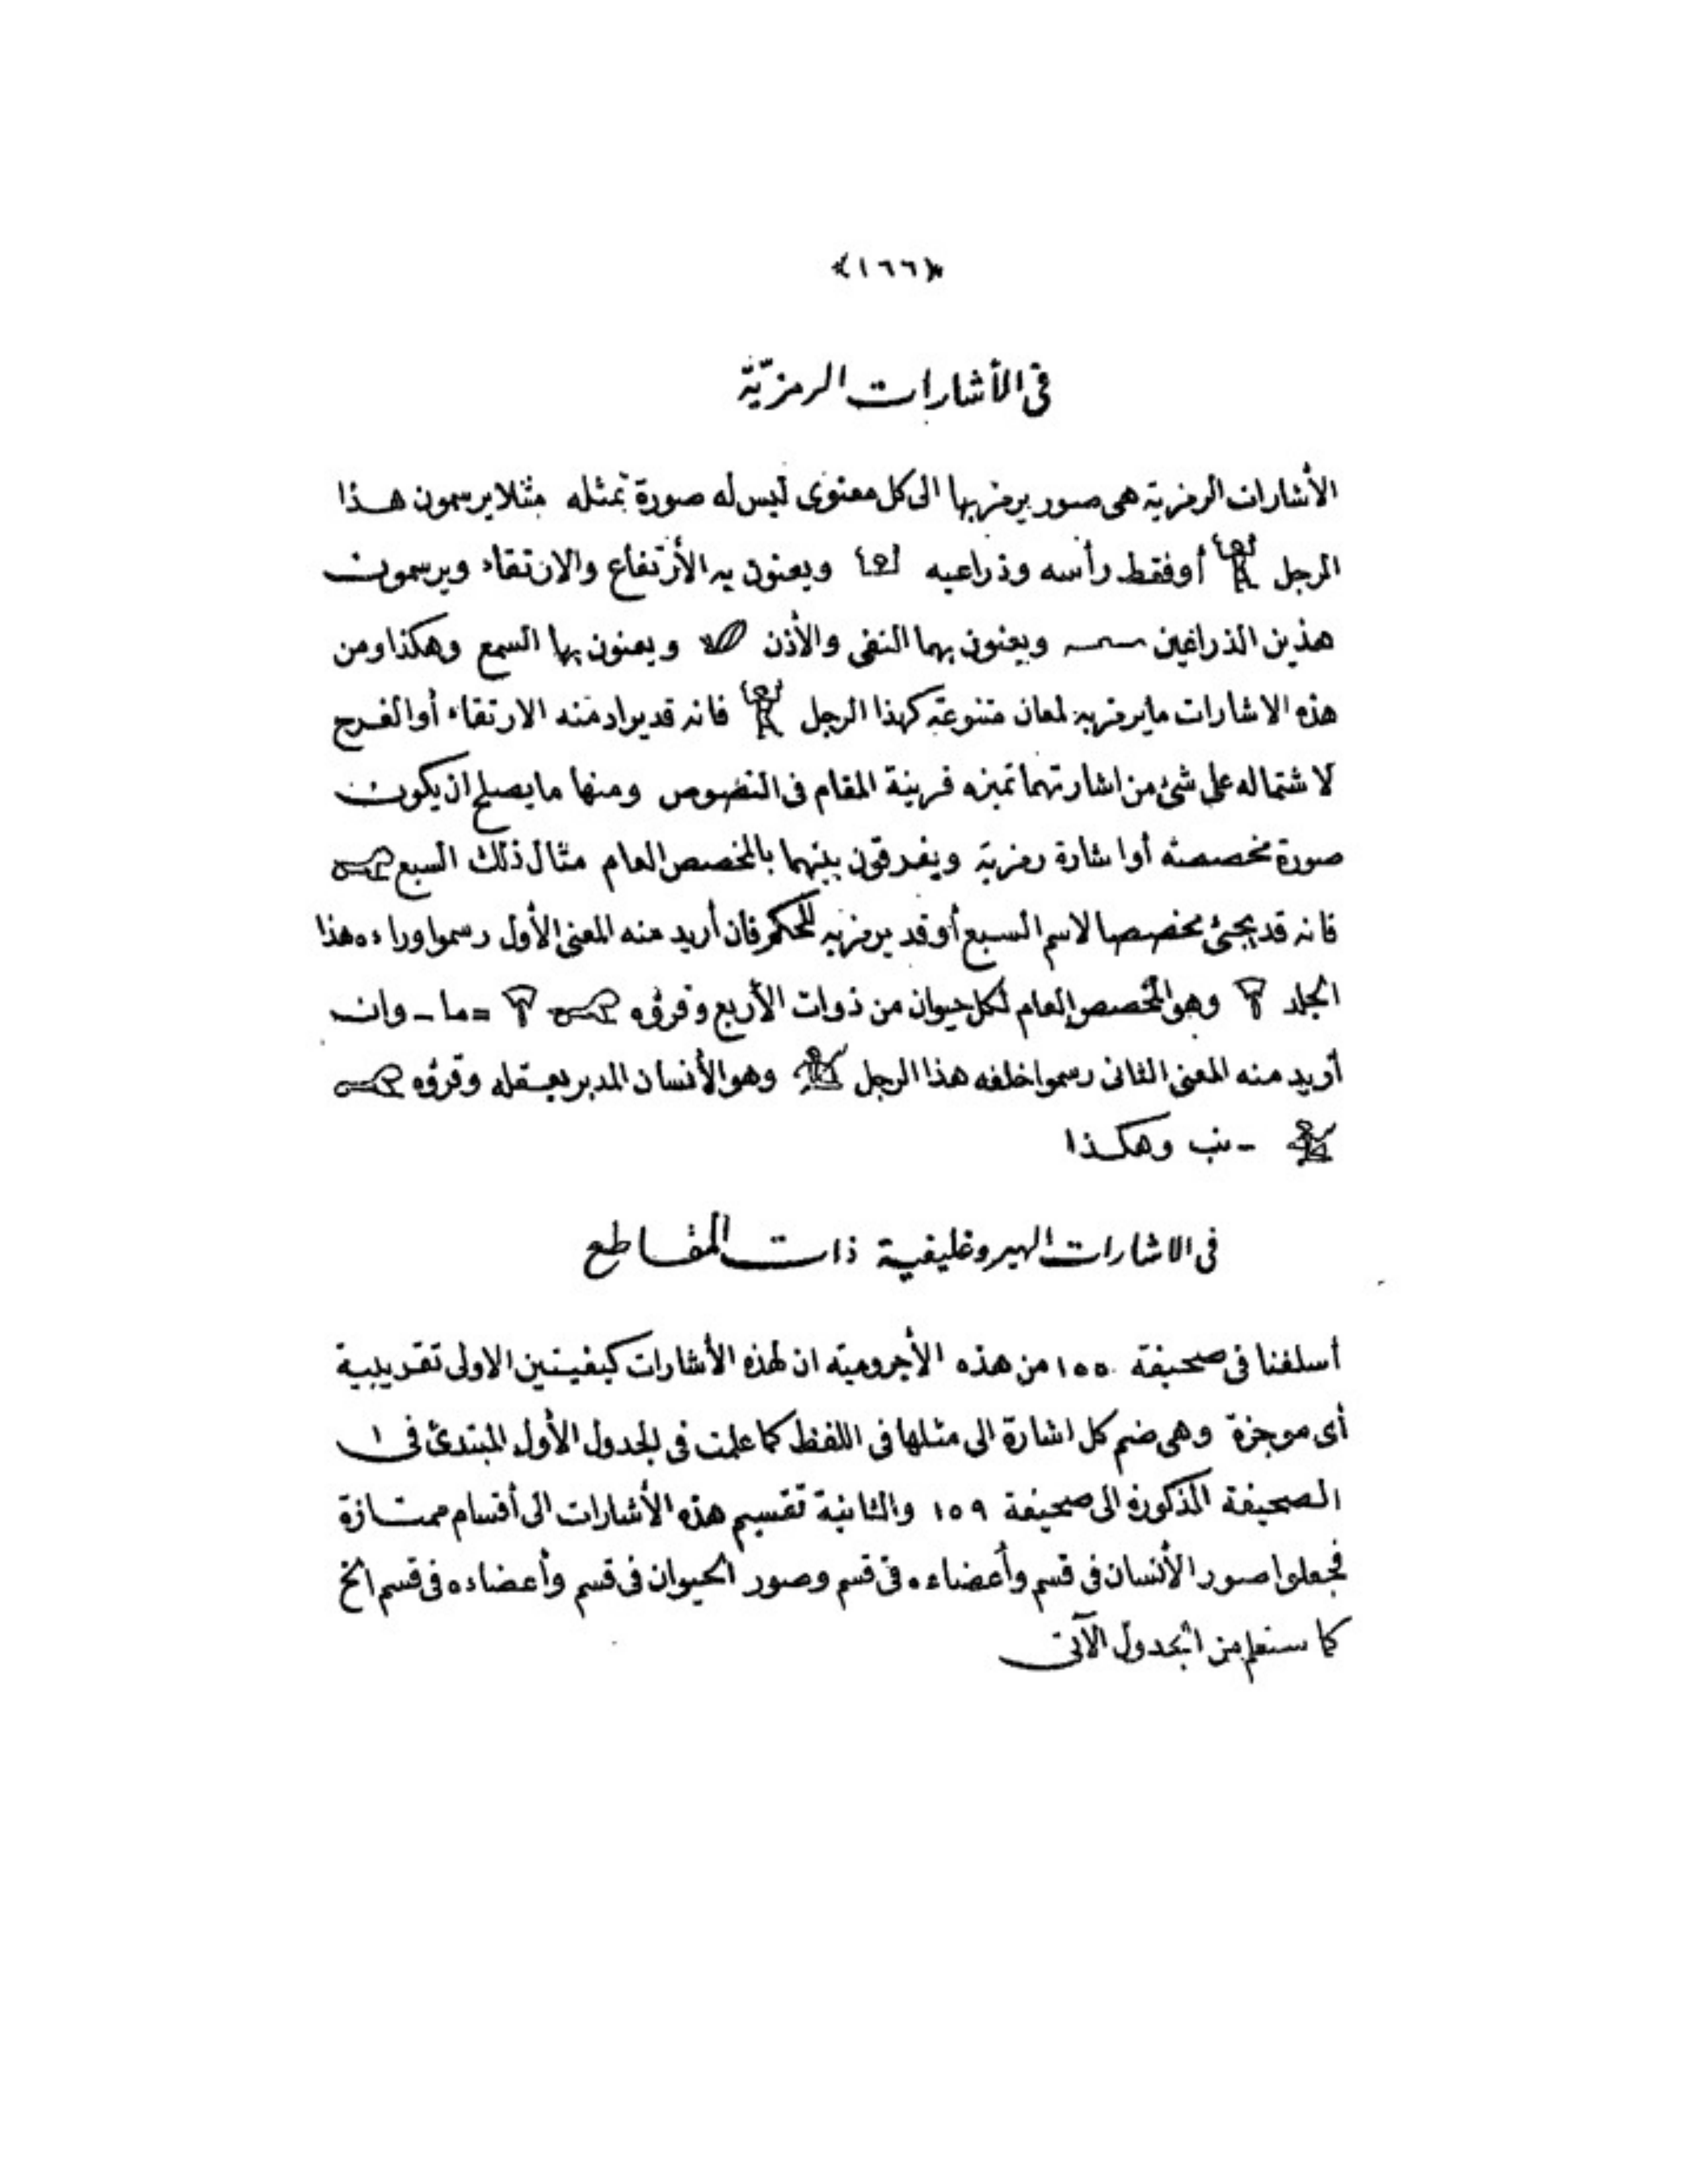 ﴿١٦٦﴾
فى الأشارات الرمزيّة
الأشارات الرمزية هى صور يرمز بها الى كل معنوى ليس له صورة تمثله مثلا يرسمون هذا
الرجل أو فقط رأسه وذراعيه ويعنون به الأرتفاع والارتقاء ويرسمون
هذين الذراعين ويعنون بهما النفى والأذن ويعنون بها السمع وهكذا ومن
هذه الاشارات ما يرمز به لمعان متنوعة كهذا الرجل فانه قد يراد منه الارتقاء أو الفرح
لاشتماله على شئ من اشارتهما تميزه قرينة المقام فى النصوص ومنها ما يصلح ان يكون
صورة مخصصة أو اشارة رمزية ويفرقون بينهما بالمخصص العام مثال ذلك السبع
فانه قد يجئ مخصصا لاسم السبع أو قد يرمز به للحكم فان أريد منه المعنى الأول رسموا وراءه هذا
الجلد وهو المخصص العام لكل حيوان من ذوات الأربع وقرؤه = ما - وان
أريد منه المعنى الثانى رسموا خلفه هذا الرجل وهو الأنسان المدبر بعقله وقرؤه
- نب وهكذا
فى الاشارات الهيروغليفية ذات المقاطع
أسلفنا فى صحيفة ١٥٥ من هذه الأجرومية ان لهذه الأشارات كيفيتين الاولى تقريبية
أى موجزة وهى ضم كل اشارة الى مثلها فى اللفظ كما علمت فى الجدول الأول المبتدئ فى
الصحيفة المذكورة الى صحيفة ١٥٩ والثانية تقسيم هذه الأشارات الى أقسام ممتازة
فجعلوا صور الأنسان فى قسم وأعضاءه فى قسم وصور الحيوان فى قسم وأعضاءه فى قسم الخ
كما ستعلم من الجدول الآتى